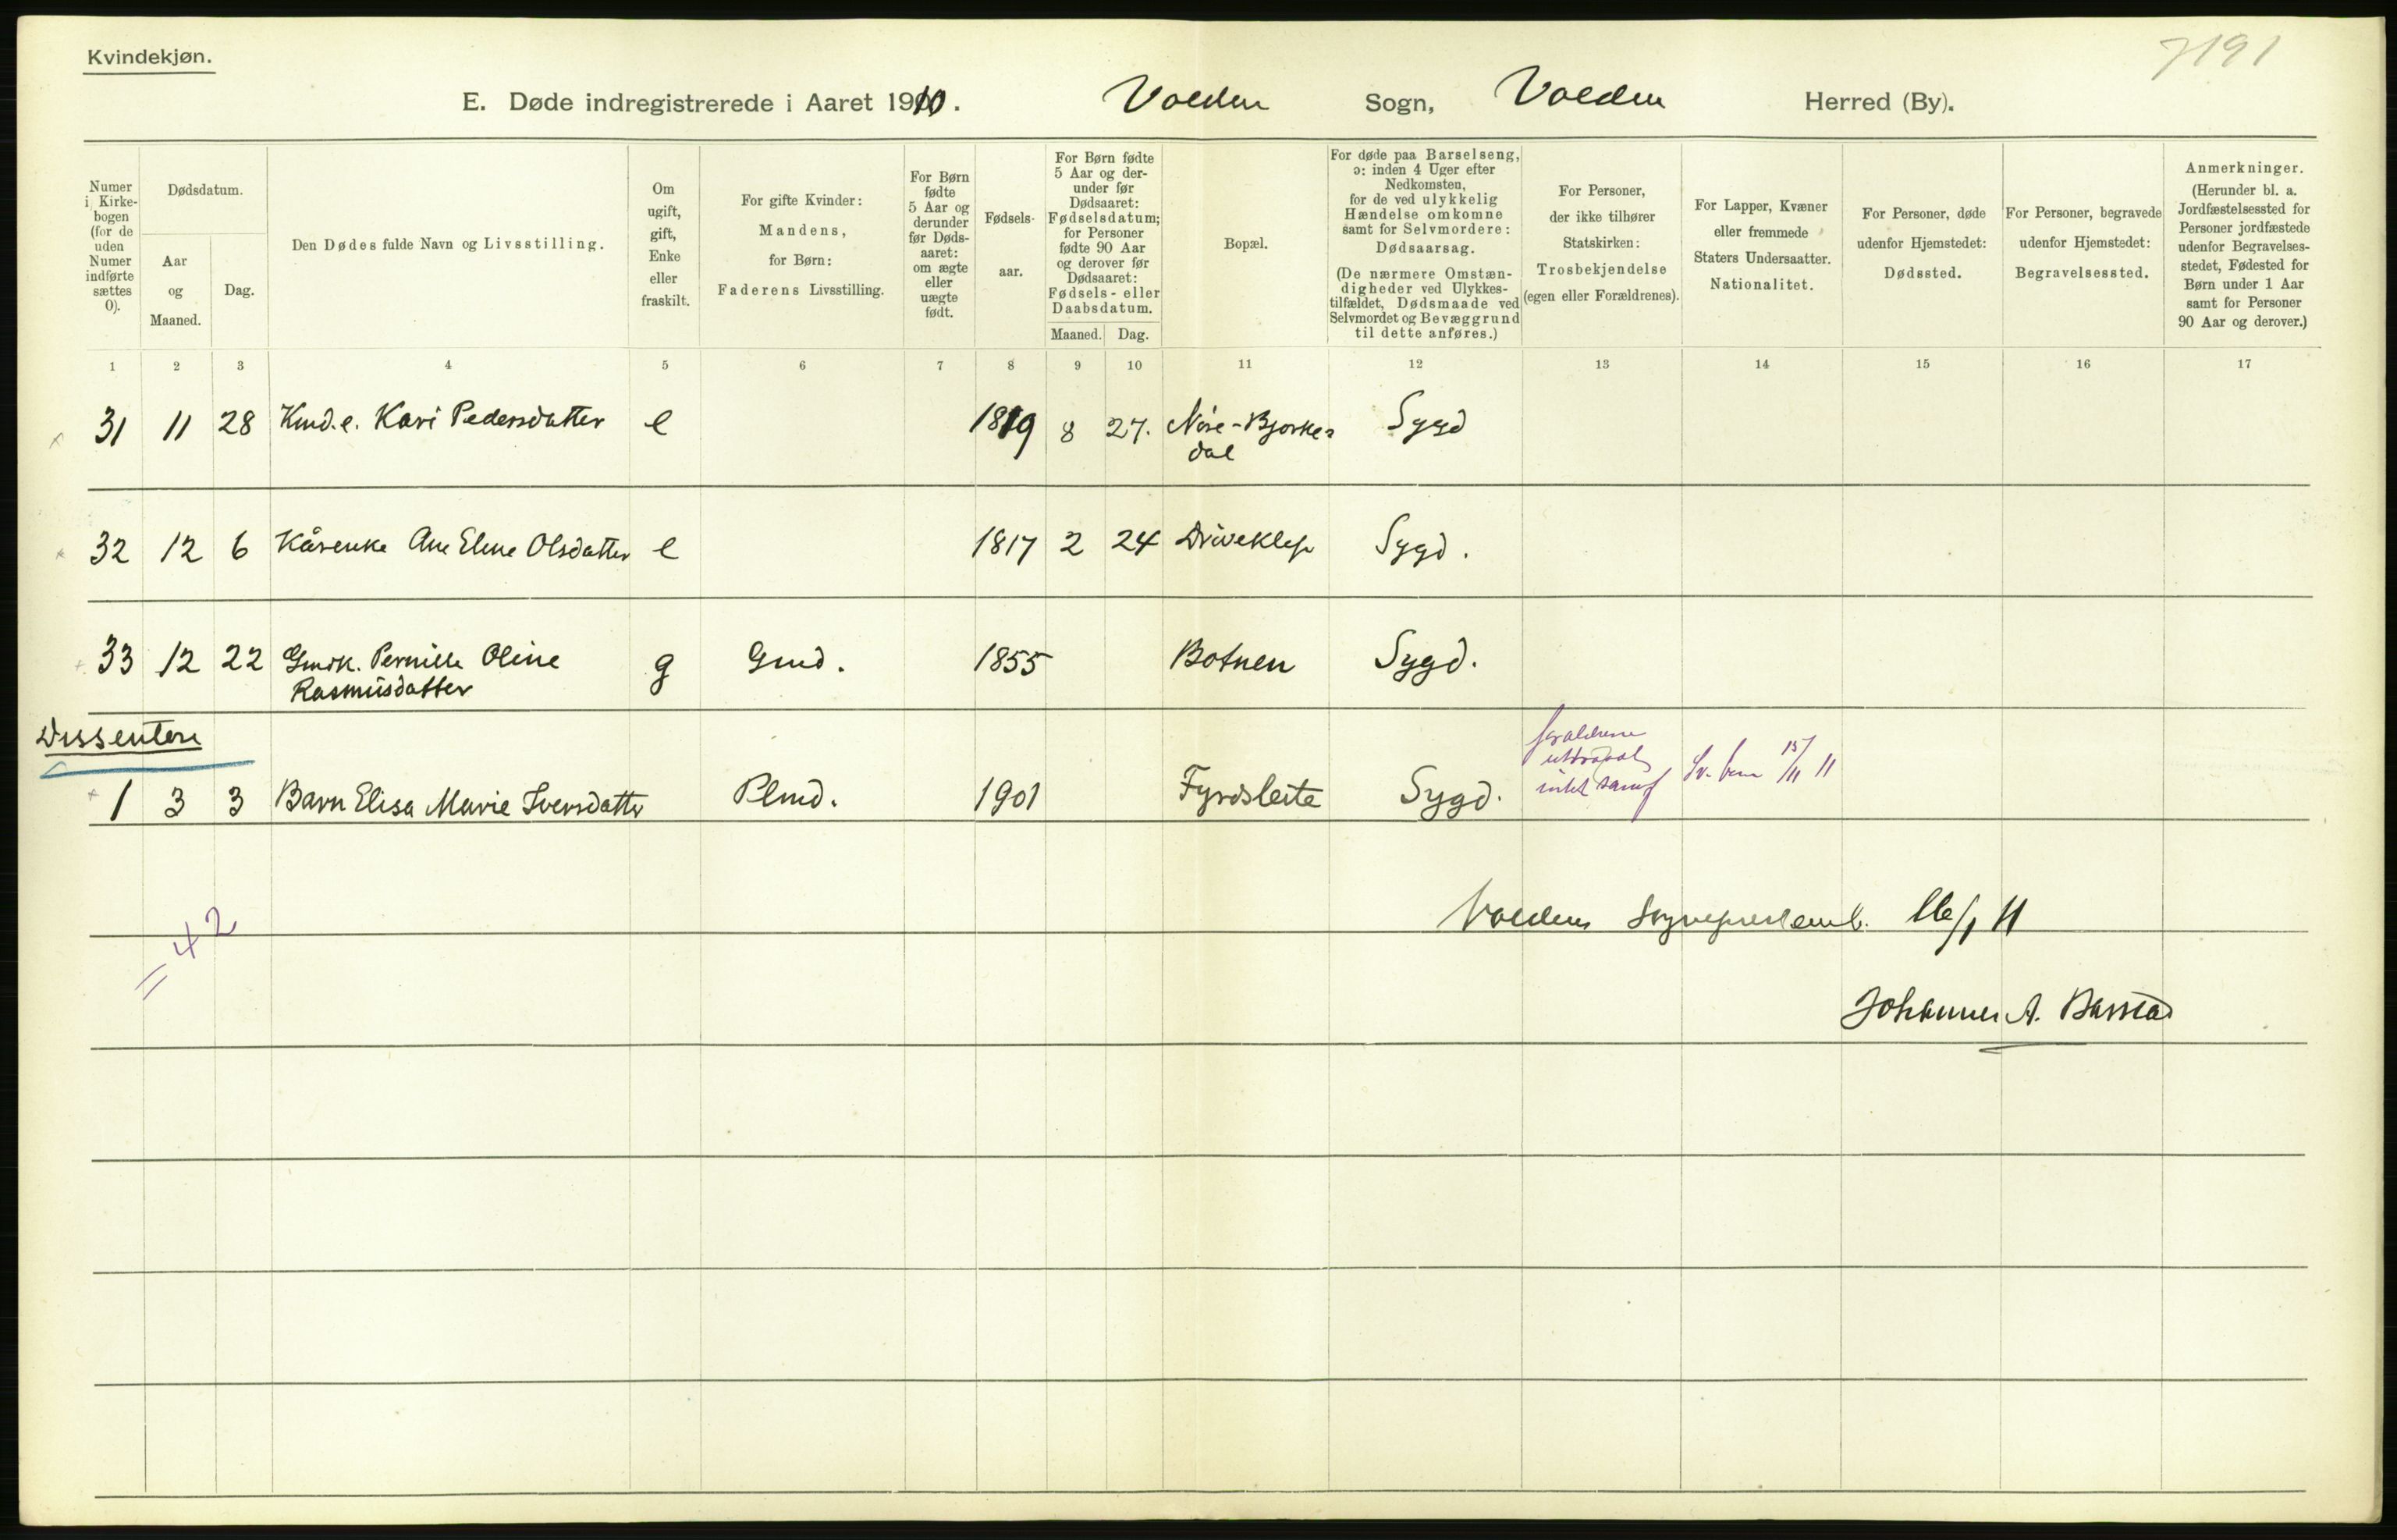 Kvindekjøn.
7191
E. Døde indregistrerede i Aaret 1910. Volden Sogn, Volden Herred (By).
Numer i Kirke-bogen (for de uden Numer indførte sættes 0).
Dødsdatum.
Aar og Maaned.
Dag.
Den Dødes fulde Navn og Livsstilling.
Om ugift, gift, Enke eller fraskilt.
For gifte Kvinder: Mandens, for Børn: Faderens Livsstilling.
For Børn fødte 5 Aar og derunder før Døds-aaret: om ægte eller uægte født.
Fødsels-aar.
For Børn fødte 5 Aar og der-under før Dødsaaret: Fødselsdatum; for Personer fødte 90 Aar og derover før Dødsaaret: Fødsels- eller Daabsdatum.
Maaned. Dag.
Bopæl.
For døde paa Barselseng, ɔ: inden 4 Uger efter Nedkomsten, for de ved ulykkelig Hændelse omkomne samt for Selvmordere: Dødsaarsag.
(De nærmere Omstæn-digheder ved Ulykkes-tilfældet, Dødsmaade ved Selvmordet og Bevæggrund til dette anføres.)
For Personer, der ikke tilhører Statskirken: Trosbekjendelse (egen eller Forældrenes).
For Lapper, Kvæner eller fremmede Staters Undersaatter. Nationalitet.
For Personer, døde udenfor Hjemstedet: Dødssted.
For Personer, begravede udenfor Hjemstedet: Begravelsessted.
Anmerkninger.
(Herunder bl. a. Jordfæstelsessted for Personer jordfæstede udenfor Begravelses-stedet, Fødested for Børn under 1 Aar samt for Personer 90 Aar og derover.)
1 2 3 4 5 6 7 8 9 10 11 12 13 14 15 16 17
31 11 28 Kmd.e. Kari Pedersdatter e 1819 8 27. Nøre-Bjørke-
dal Sygd
32 12 6 Kårenke Ane Eline Olsdatter e 1817 2 24 Driveklep Sygd.
33 12 22 Gmdk. Pernille Oline
Rasmusdatter g Gmd. 1855 Botnen Sygd.
Dissentere
1 3 3 Barn Elisa Marie Iversdatter Plmd. 1901 Fyrdsleite Sygd.
forældrene
uttraadt
intet samf Sv. 15/11 11
Voldens Sogneprestemb. 16/1 11
= 42
Johannes A. Barstad